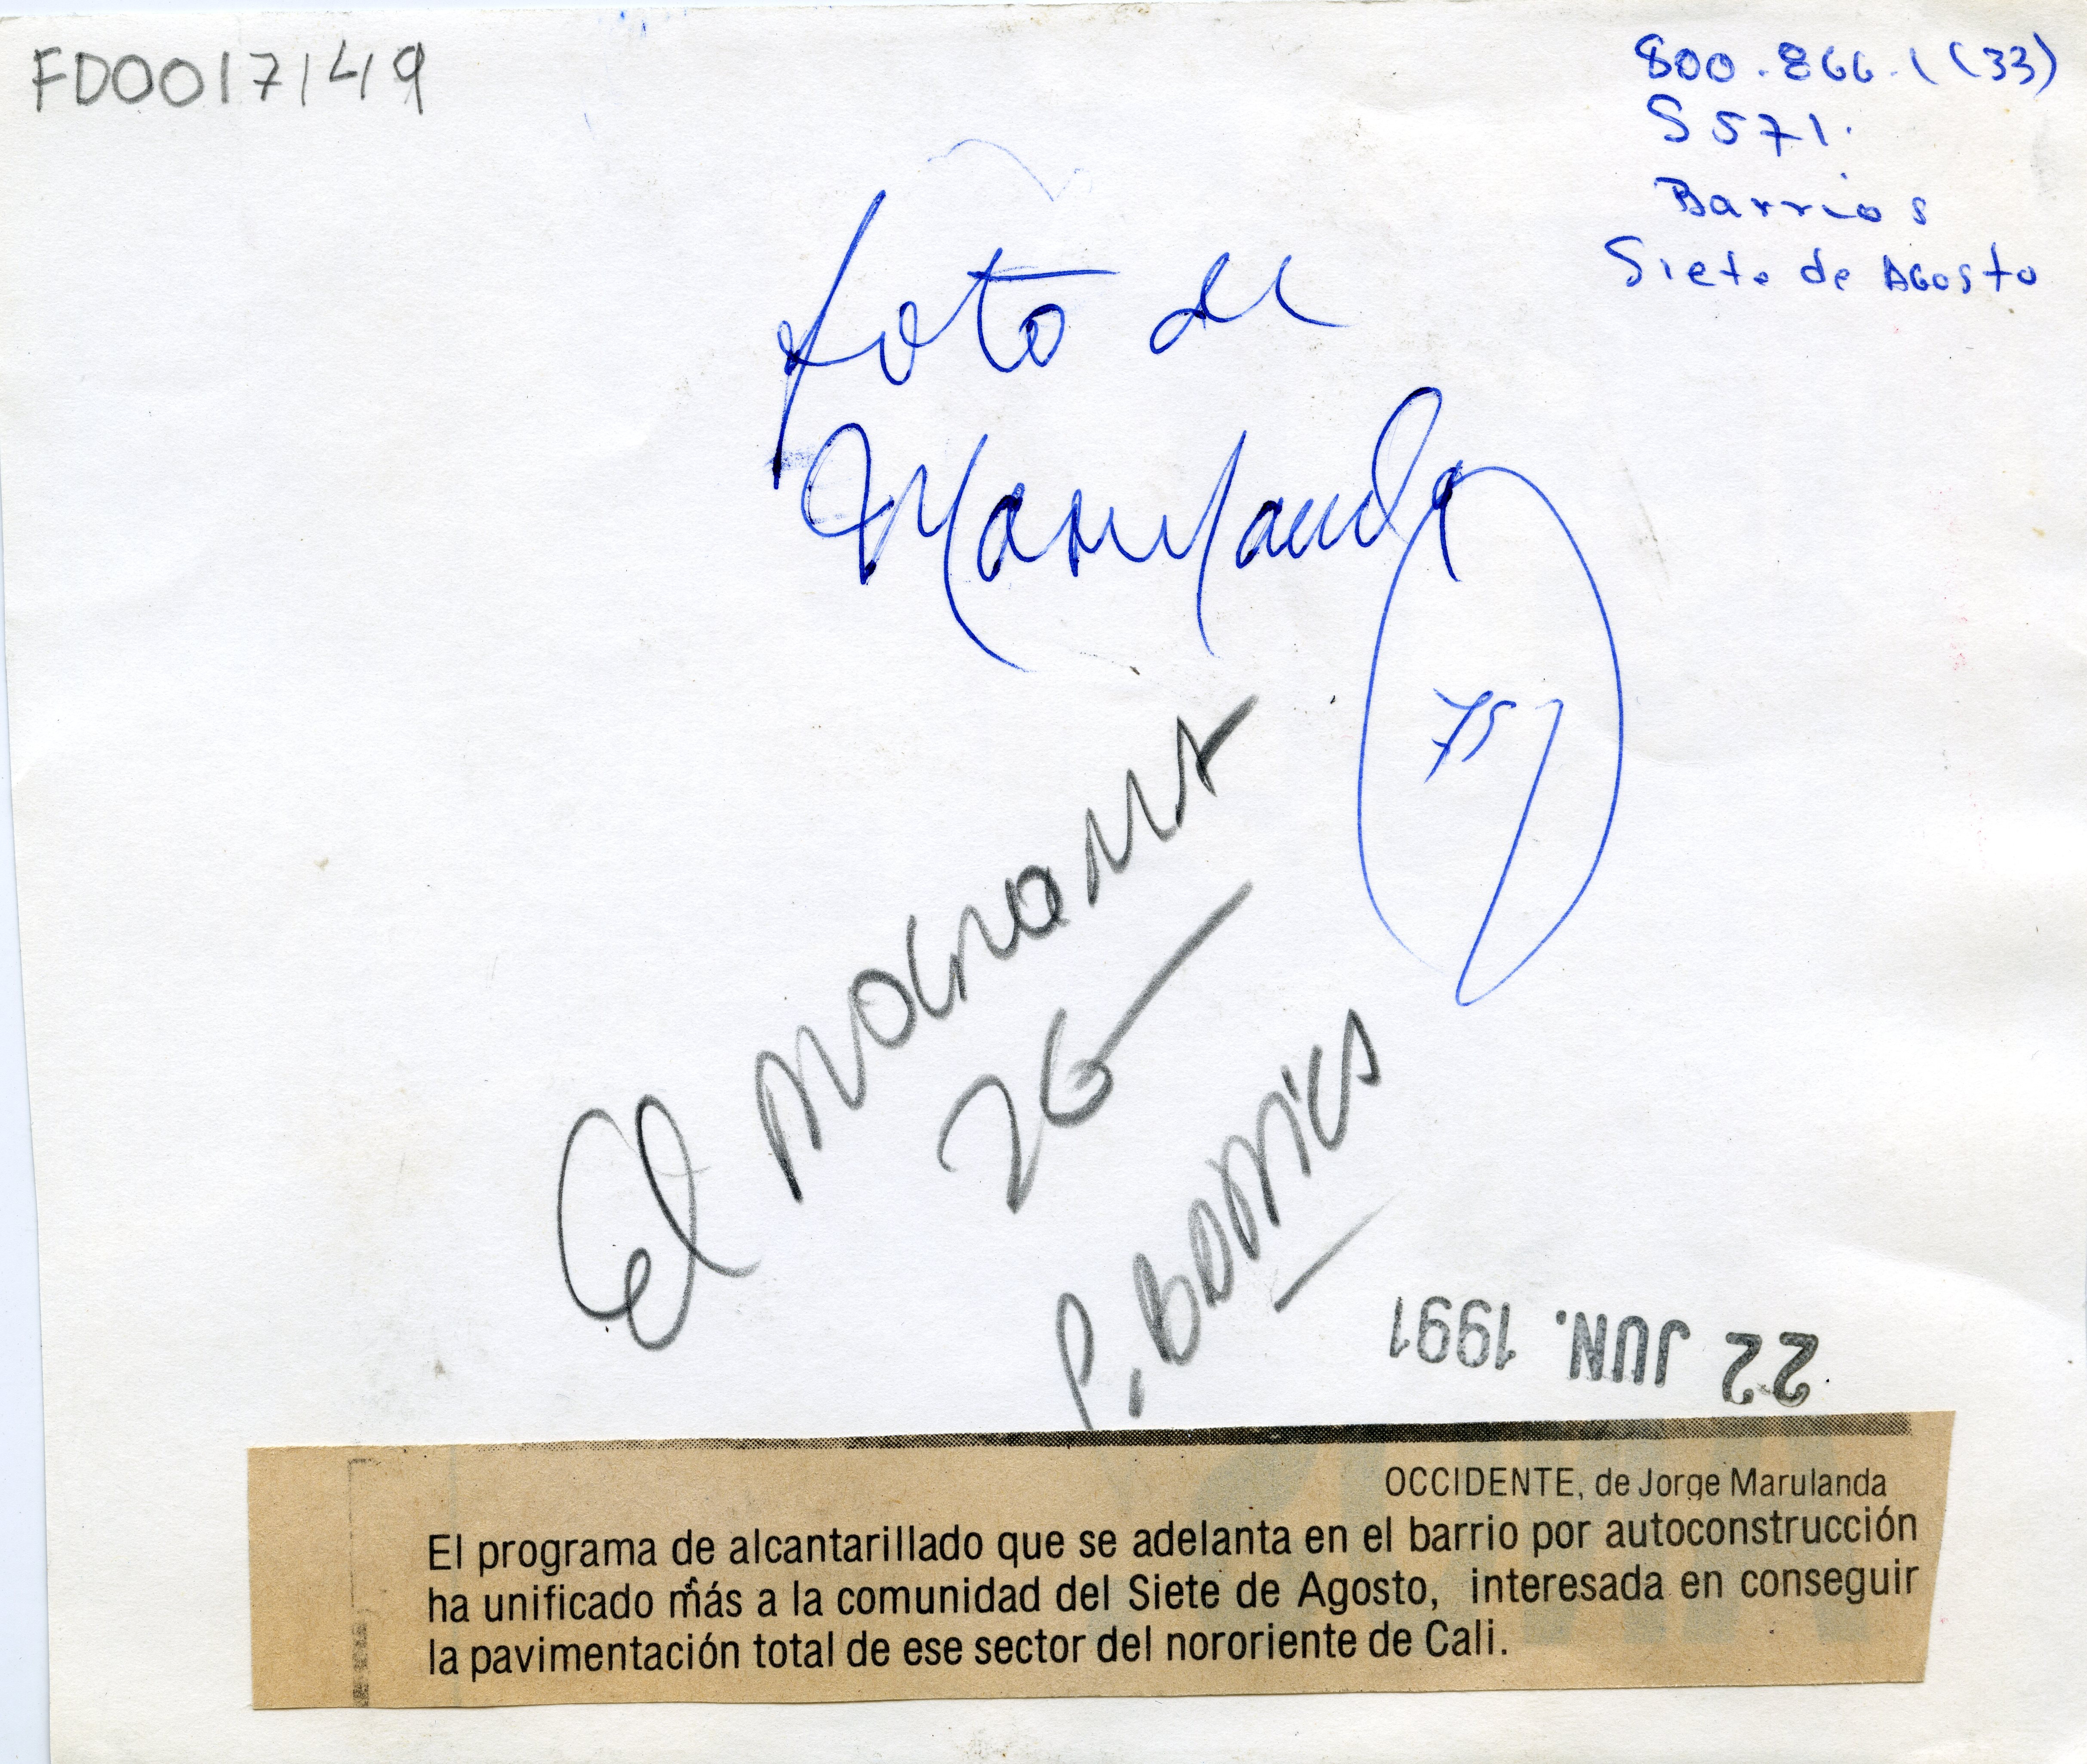 FD0017149
800.866.1(33)
S571.
Barrios
Siete de Agosto
foto de
Marulanda
75
El
26
P. Barrios
22 JUN. 1991
OCCIDENTE, de Jorge Marulanda
El programa de alcantarillado que se adelanta en el barrio por autoconstrucción
ha unificado más a la comunidad del Siete de Agosto, interesada en conseguir
la pavimentación total de ese sector del nororiente de Cali.